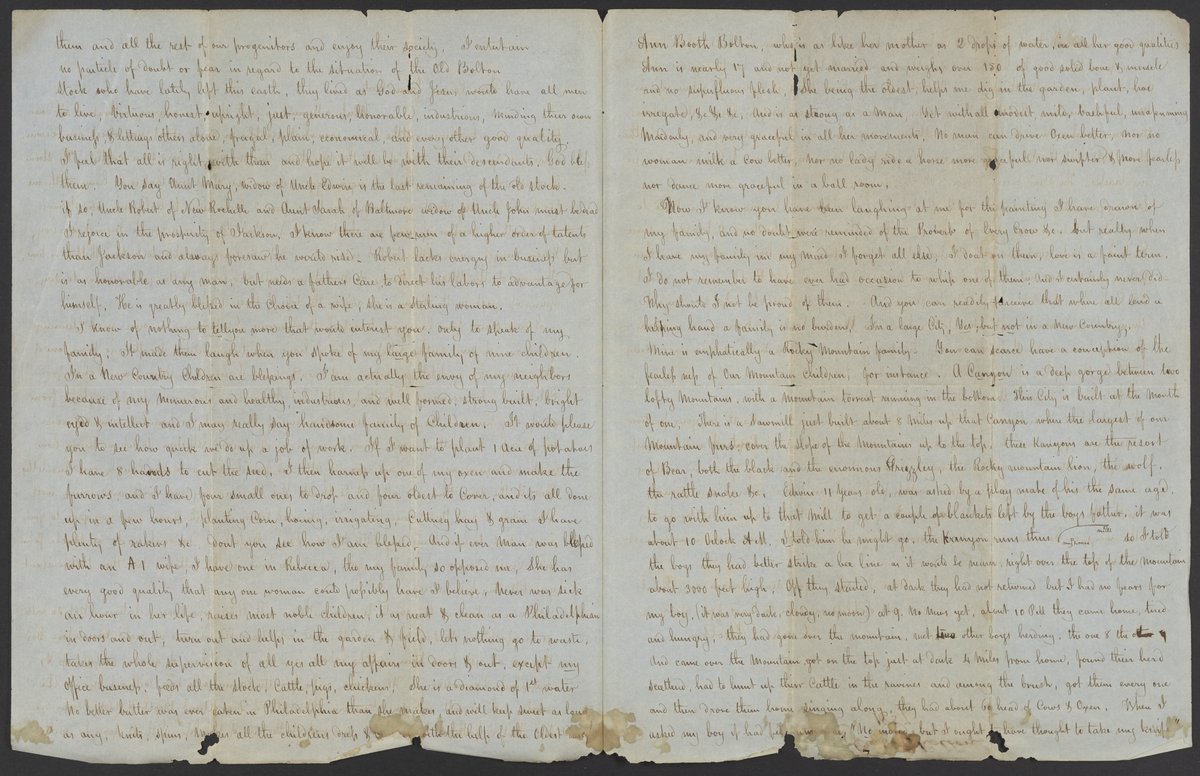 them and all the rest of our progenitors and enjoy their society. I entertain
no particle of doubt or fear in regard to the situation of the Old Bolton
stock who have lately left this earth, they lived as God and Jesus would have all men
to live, virtuous, honest, upright, just, generous, honorable, industrious, minding their own
business & letting others alone, frugal, plain, economical, and every other good quality,
I feel that all is right with them and hope it will be with their descendants. God bless
them. You say Aunt Mary, widow of Uncle Edwin is the last remaining of the old stock.
if so, Uncle Robert of New Rochelle and Aunt Sarah of Baltimore widow of Uncle John must be dead
I rejoice in the prosperity of Jackson. I know there are few men of a higher order of talents
than Jackson and always foresaw he would rise. Robert lacks energy in business but
is as honorable as any man, but needs a fathers Care, to direct his labors to advantage for
himself. He is greatly blessed in the Choice of a wife, she is a sterling woman.
I know of nothing to tell you more that would interest you. only to speak of my
family. It made them laugh when you spoke of my large family of nine children.
In a New Country Children are blessings. I am actually the envy of my neighbors
because of my numerous and healthy, industrious, and well formed, strong built, bright
eyed & intellect and I may really say handsome family of Children. It would please
you to see how quick we do up a job of work. If I want to plant 1 Acre of potatoes
I have 8 hands to cut the seed. I then harness up one of my oxen and make the
furrows and I have four small ones to drop and four oldest to Cover, and its all done
up in a few hours, planting Corn, hoing, irrigating, Cutting hay & grain I have
plenty of rakers &c dont you see how I am blessed. And if ever Man was blessed
with an A.1 wife, I have one in Rebecca, tho my family so opposed me, She has
every good quality that any one woman could possibly have I believe, Never was sick
an hour in her life, raises most noble children, is as neat & clean as a Philadelphian
in doors and out, turn out and helps in the garden & field, lets nothing go to waste.
takes the whole supervision of all yes all my affairs in doors & out, except my
Office business. feeds all the stock, Cattle, pigs, chickens. She is a diamond of 1st water
No better butter was ever eaten in Philadelphia than she makes, and will keep sweet as long
as any, knits, spins, makes all the childrens dress & with the help of the Oldest
Ann Booth Bolton, who is as like her mother as 2 drops of water, in all her good qualities
Ann is nearly 17 and not yet married and weighs over 150 of good solid bone & muscle
and no superfluous flesh. She being the oldest, helps me dig in the garden, plant, hoe
irregate, &c &c &c, And is as strong as a Man. Yet withall modest mild, bashful, unassuming
Maidenly, and very graceful in all her movements. No man can drive Oxen better, nor no
woman milk a Cow better, nor no lady ride a horse more graceful nor swifter & more fearless
nor dance more graceful in a ball room.
Now I know you have been laughing at me for the painting I have drawn of
my family, and no doubt were reminded of the Proverb of Every Crow &c. but really when
I have my family in my mind I forget all else, I doat on them, love is a faint term.
I do not remember to have ever had occasion to whip one of them, and I certainly never did.
Why should I not be proud of them. And you can readily perceive that where all lend a
helping hand a family is no burden. In a large City, Yes, but not in a New Country.
Mine is emphatically a Rocky Mountain family. You can scarce have a conception of the
fearlessness of Our Mountain Children, for instance. A Canyon is a deep gorge between two
lofty Mountains, with a mountain torrent running in the bottom. This City is built at the Mouth
of one. There is a Sawmill just built about 8 Miles up that Canyon where the largest of our
Mountain firs cover the slope of the Mountains up to the top. these Kanyons are the resort
of Bear, both the black and the enormous Grizzley, the Rocky mountain lion, the wolf.
the rattle snake &c. Edwin 11 years old, was asked by a play mate of his the same age,
to go with him up to that Mill to get a couple of blankets left by the boys father, it was
about 10 Oclock A.M. I told him he might go. the Kannyon runs thus 8 miles so I told
the boys they had better strike a bee line as it would be nearer, right over the top of the Mountain
about 3000 feet high. Off they started, at dark they had not returned but I had no fears for
my boy, (it was very dark, cloudy, no moon) at 9. No News yet, about 10 P.M they came home, tired
and hungry. they had gone over the mountain, met two other boys herding, the one 8 the other 9
And came over the Mountain, got on the top just at dark 4 Miles from home, found their herd
scattered, had to hunt up their Cattle in the ravines and among the brush, got them every one
and then drove them home singing along, they had about 60 head of Cows & Oxen. When I
asked my boy if he had "No more but I ought to have thought to take my knife"